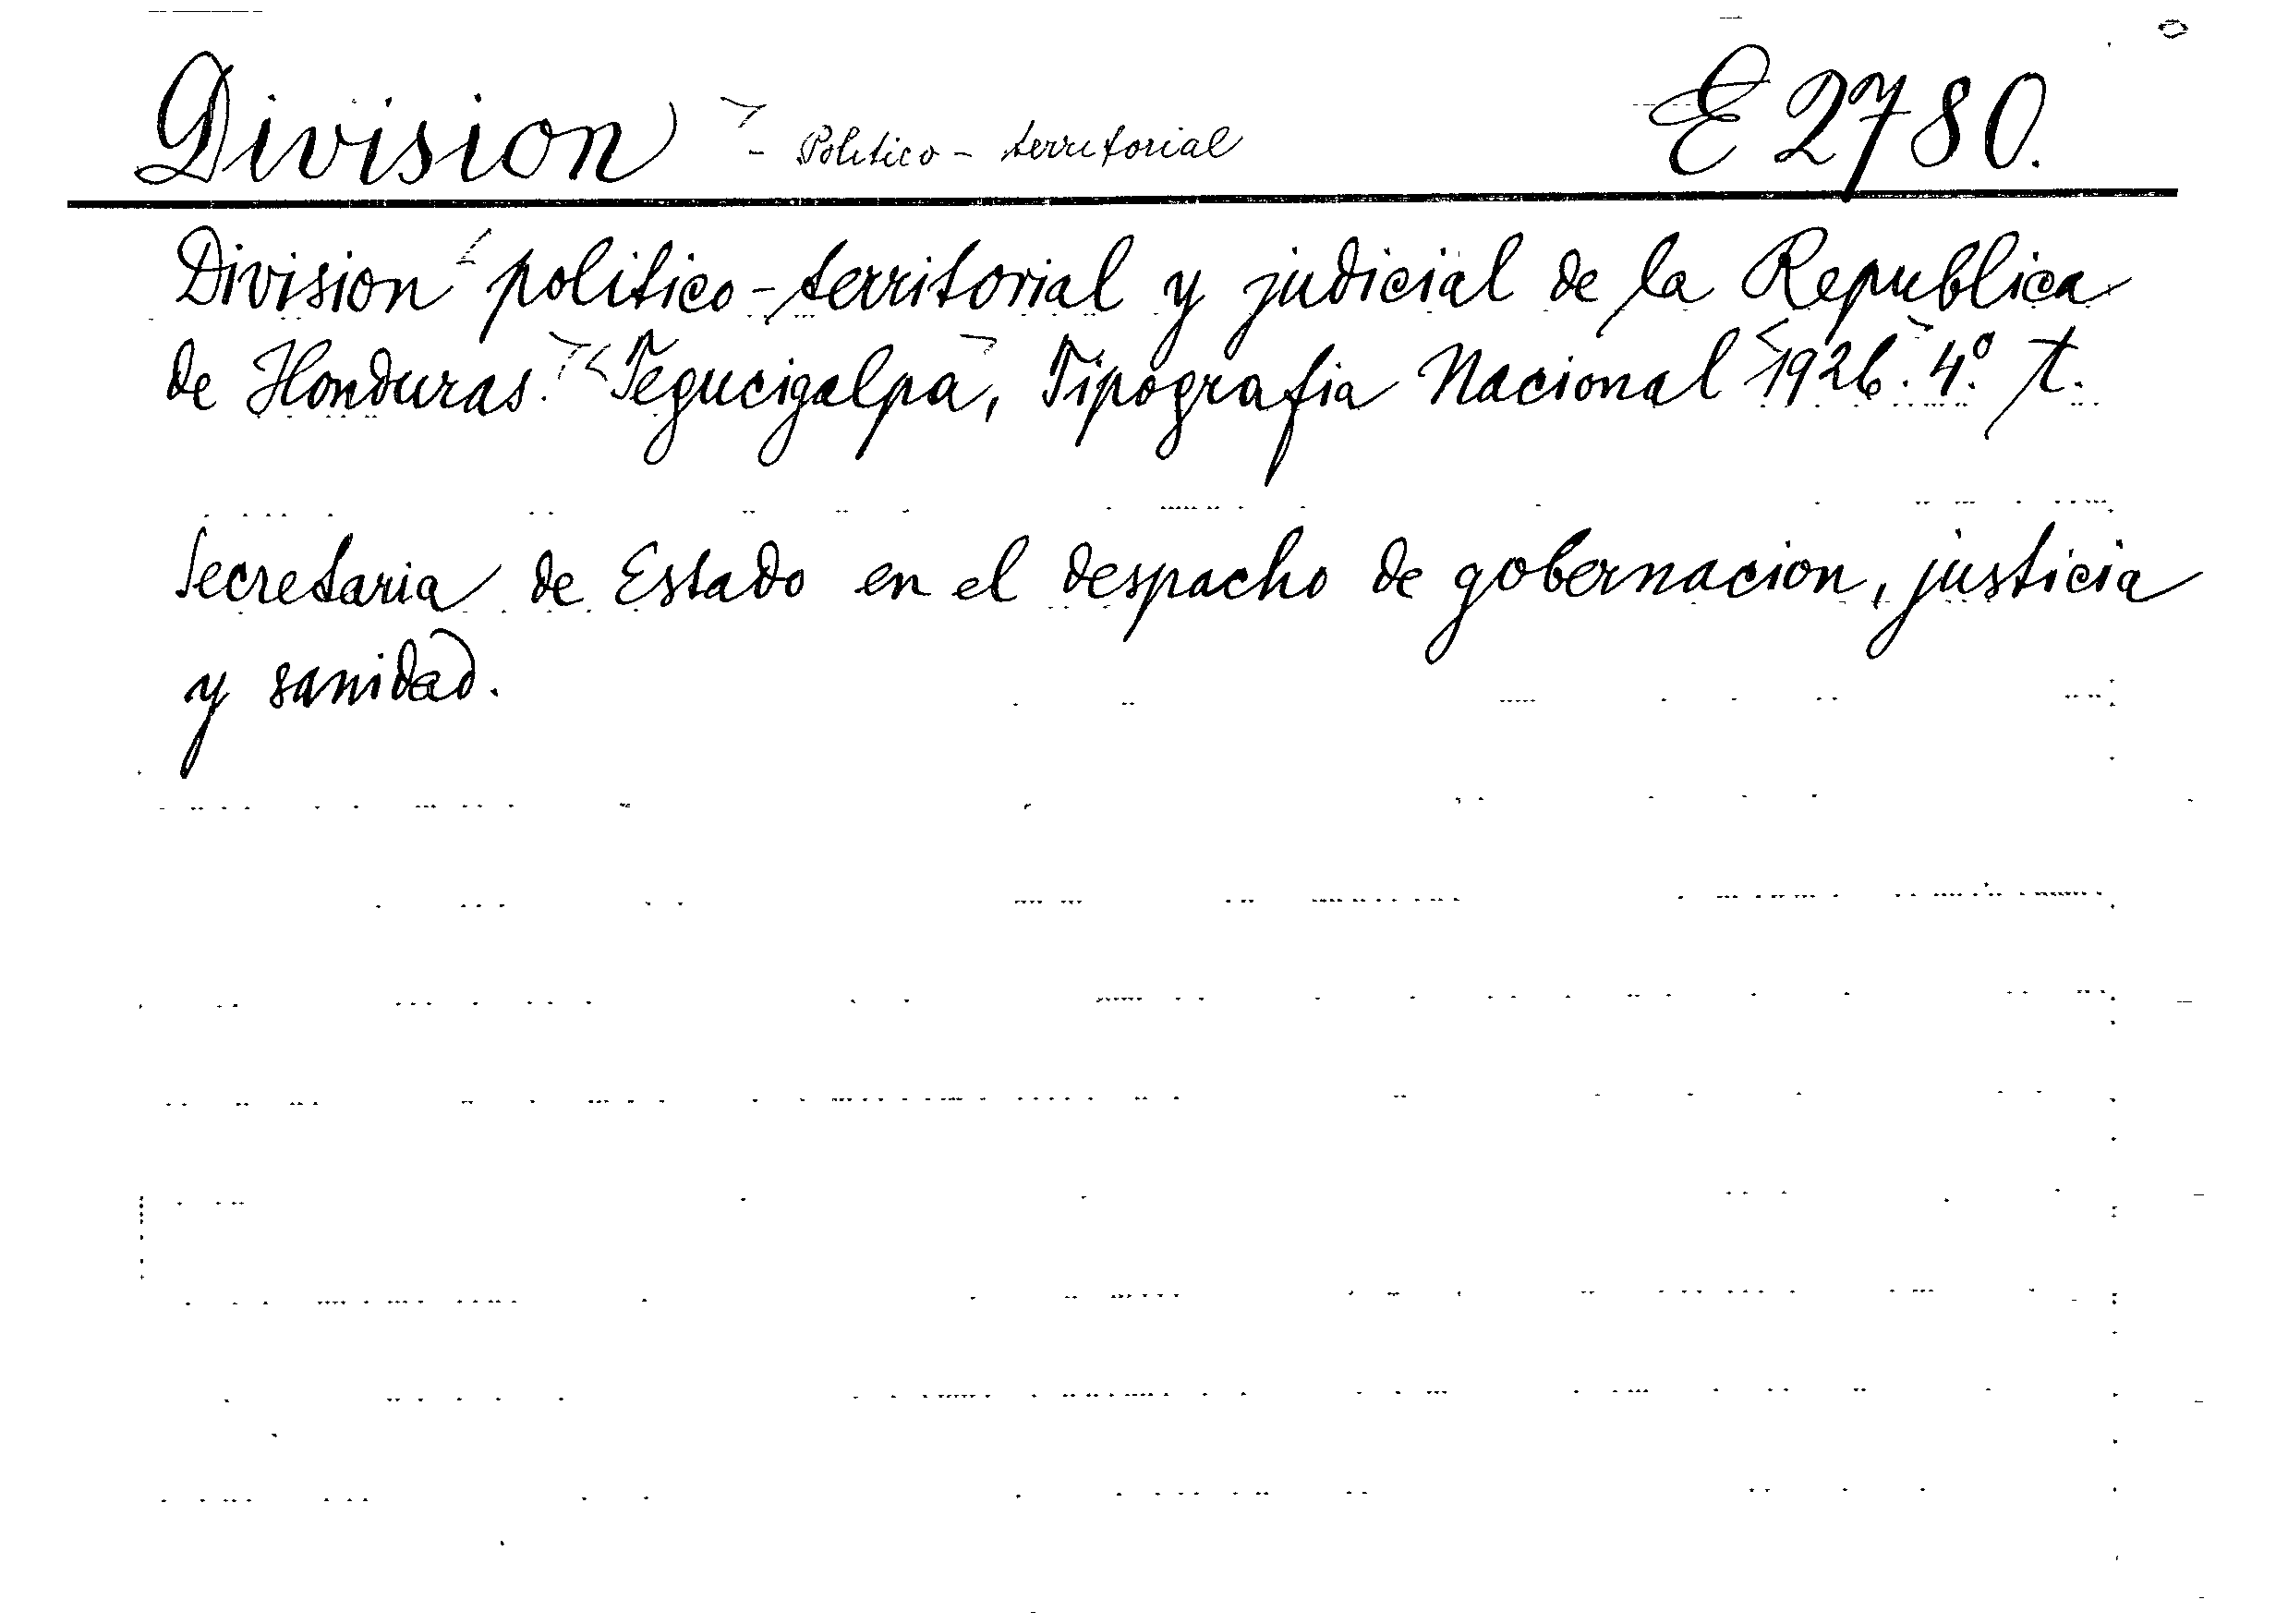 Division - Politico - territorial E 2780.
Division politico-territorial y judicial de la Republica
de Honduras. Tegucigalpa, Tipografia Nacional 1926. 4º. t.
Secretaria de Estado en el despacho de gobernacion, justicia
y sanidad.